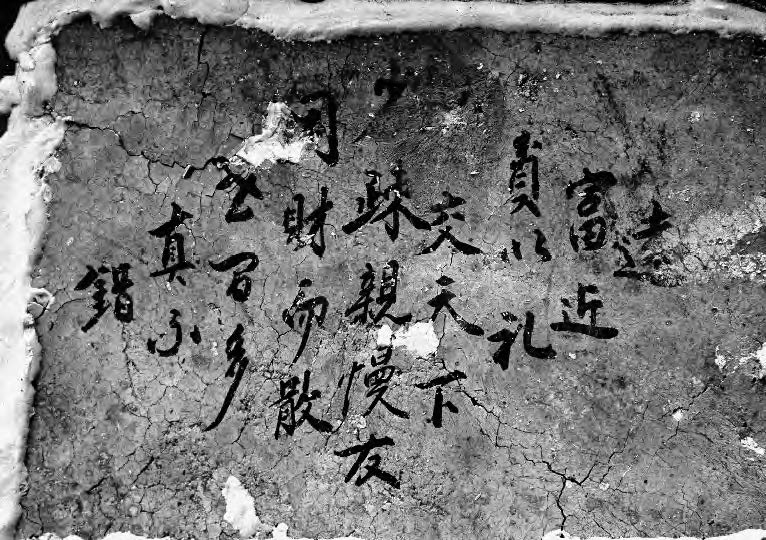 遠
富近
貧以礼
交天下
少疎親慢友
財而散
世间多
真不
錯